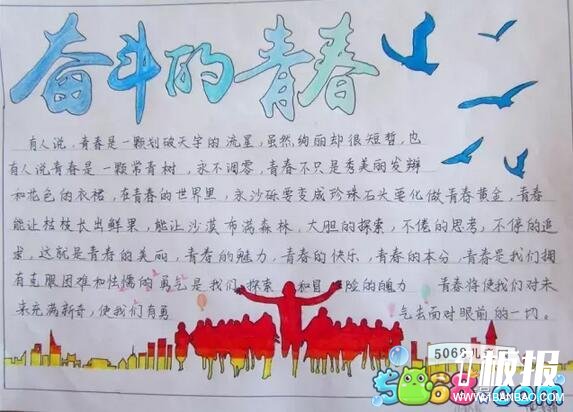 奋斗的青春
有人说,青春是一颗划破天宇的流星,虽然绚丽却很短暂,也
有人说青春是一颗常青树,永不调零,青春不只是秀美的发辫
和花色的衣裙,在青春的世界里,永沙砾要变成珍珠石头要化做青春黄金,青春
能让枯枝长出鲜果,能让沙漠布满森林,大胆的探索,不倦的思考,不停的追
求,这就是青春的美丽,青春的魅力,青春的快乐,青春的本分,青春是我们拥
有克服困难和怯懦的勇气是我们探索和冒险的魄力 青春将使我们对未
来充满新奇,使我们有勇气去面对眼前的一切。
5068儿
板报
WWW.1BANBAO.COM
5068.com